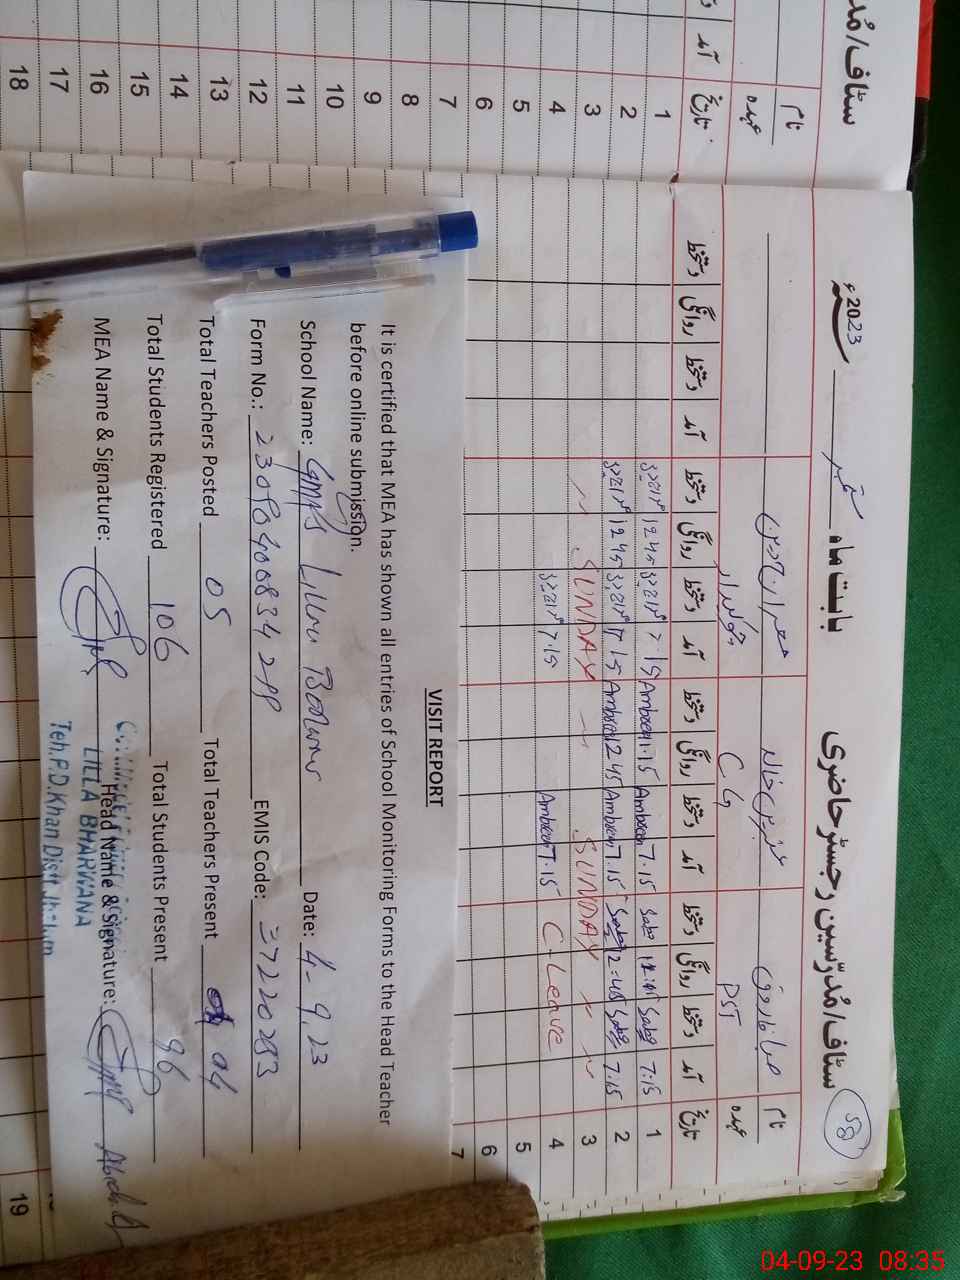 58
سٹاف/مُدرّسین رجسٹر حاضری
بابت ماہ ستمبر 2023ء
نام
عہدہ PST
C.G
تاریخ
آمد دستخط روانگی دستخط آمد دستخط روانگی دستخط آمد دستخط روانگی دستخط آمد دستخط روانگی دستخط
1 7:15 Saba Saba 7.15 Ambreen 1.15 Ambreen 7.15 12 45
2 7:15 Saba 12:45 Saba 7.15 Ambreen 12 45 Ambreen 7 15 12 45
3 SUNDAY SUNDAY
4 C-Leave 7.15 Ambreen 7.15
5
6
7
19
سٹاف/مُد
نام
عہدہ
تاریخ
آمد
1
2
3
4
5
6
7
8
9
10
11
12
13
14
15
16
17
18
VISIT REPORT
It is certified that MEA has shown all entries of School Monitoring Forms to the Head Teacher
before online submission.
School Name: GMPS Lilla Date: 4-9.23
Form No.: EMIS Code: 37220283
Total Teachers Posted 05 Total Teachers Present 04
Total Students Registered 106 Total Students Present 96
MEA Name & Signature: Head Name & Signature:
LILLA BHARWANA
Teh.P.D.Khan Distt Jhelum
04-09-23 08:35